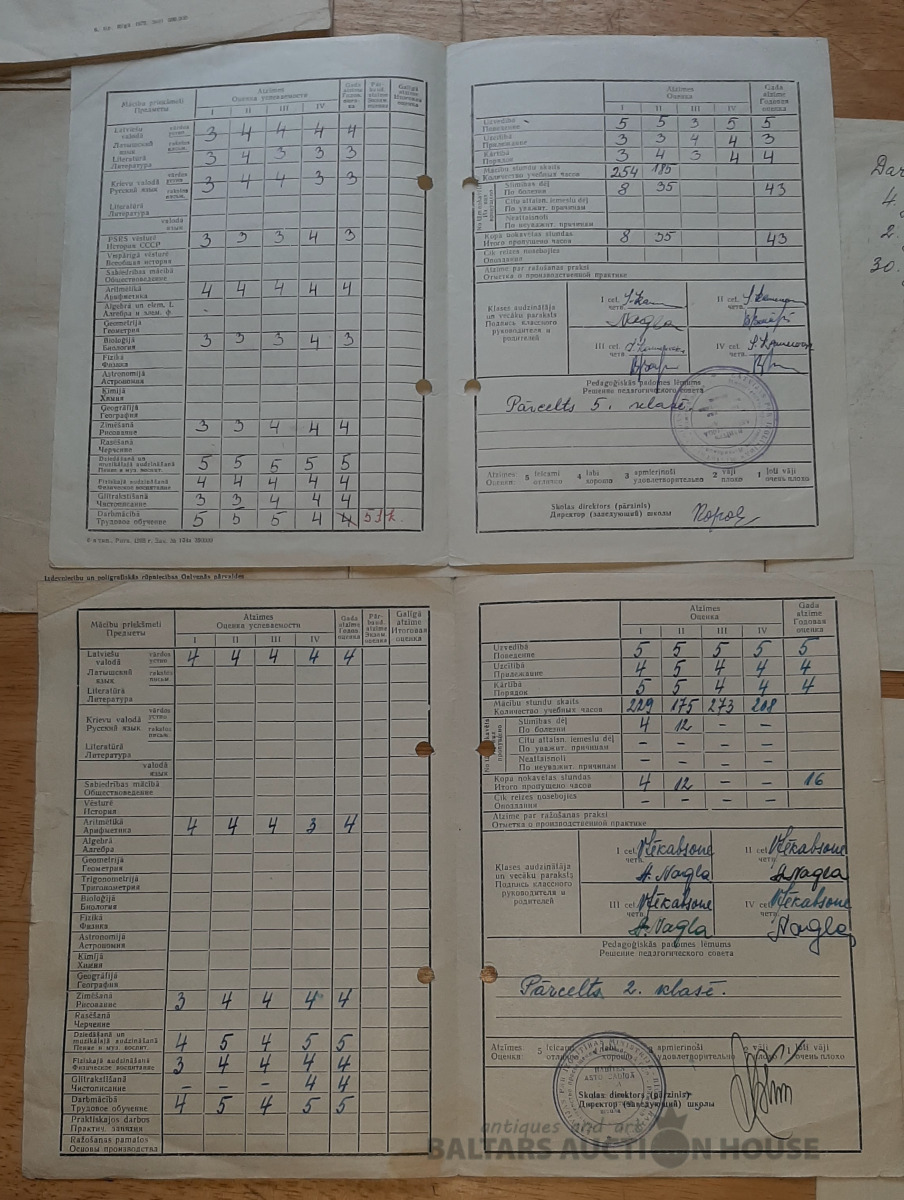 Mācību priekšmeti
Предметы
Atzīmes
Оценка успеваемости
Gada atzīme Годовая оценка
Pārbaud. atzīme Экзам. оценка
Galīgā atzīme Итоговая оценка
I II III IV
Latviešu valodā vārdos устно 3 4 4 4 4
Латышский язык rakstos письм.
Literatūrā
Литература 3 4 3 3 3
Krievu valodā vārdos устно 3 4 4 3 3
Русский язык rakstos письм.
Literatūrā
Литература
valodā
язык
PSRS vēsturē
История СССР 3 3 3 4 3
Vispārīgā vēsturē
Всеобщая история
Sabiedrības mācībā
Обществоведение
Aritmētikā
Арифметика 4 4 4 4 4
Algebrā un elem. f.
Алгебра и элем. ф. -
Ģeometrijā
Геометрия
Bioloģijā
Биология 3 3 3 4 3
Fizikā
Физика
Astronomijā
Астрономия
Ķīmijā
Химия
Ģeogrāfijā
География
Zīmēšanā
Рисование 3 3 4 4 4
Rasēšanā
Черчение
Dziedāšanā un muzikālajā audzināšanā
Пение и муз. воспит. 5 5 5 5 5
Fiziskajā audzināšanā
Физическое воспитание 4 4 4 4 4
Glītrakstīšanā
Чистописание 3 3 4 4 4
Darbmācībā
Трудовое обучение 5 5 5 4 4
Atzīmes
Оценка
Gada atzīme Годовая оценка
I II III IV
Uzvedībā
Поведение 5 5 3 5 5
Uzcītībā
Прилежание 3 3 4 4 3
Kārtībā
Порядок 3 4 3 4 4
Mācību stundu skaits
Количество учебных часов 254 185
Slimības dēļ
По болезни 8 35 43
Citu attaisn. iemeslu dēļ
По уважит. причинам
Neattaisnoti
По неуважит. причинам
Kopā nokavētas stundas
Итого пропущено часов 8 35 43
Cik reizes nosebojies
Опоздания
Atzīme par ražošanas praksi
Отметка о производственной практике
Klases audzinātāja un vecāku paraksts
Подпись классного руководителя и родителей
I cet. четв.
II cet. четв.
Nagla
III cet. четв.
IV cet. четв.
Pedagoģiskās padomes lēmums
Решение педагогического совета
Pārcelts 5. klasē.
Atzīmes: 5 teicami 4 labi 3 apmierinoši 2 vāji 1 ļoti vāji
Оценки: отлично хорошо удовлетворительно плохо очень плохо
Skolas direktors (pārzinis)
Директор (заведующий) школы
Izdevniecību un poligrafiskās rūpniecības Galvenās pārvaldes
Mācību priekšmeti
Предметы
Atzīmes
Оценка успеваемости
Gada atzīme Годов. оценка
Pārbaud. atzīme Экзам. оценка
Galīgā atzīme Итоговая оценка
I II III IV
Latviešu valodā vārdos устно 4 4 4 4 4
Латышский язык rakstos письм.
Literatūrā
Литература
Krievu valodā vārdos устно
Русский язык rakstos письм.
Literatūrā
Литература
valodā
язык
Sabiedrības mācībā
Обществоведение
Vēsturē
История
Aritmētikā
Арифметика 4 4 4 3 4
Algebrā
Алгебра
Ģeometrijā
Геометрия
Trigonometrijā
Тригонометрия
Bioloģijā
Биология
Fizikā
Физика
Astronomijā
Астрономия
Ķīmijā
Химия
Ģeogrāfijā
География
Zīmēšanā
Рисование 3 4 4 4 4
Rasēšanā
Черчение
Dziedāšanā un muzikālajā audzināšanā
Пение и муз. воспит. 4 5 4 5 5
Fiziskajā audzināšanā
Физическое воспитание 3 4 4 4 4
Glītrakstīšanā
Чистописание – – – 4 4
Darbmācībā
Трудовое обучение 4 5 4 5 5
Praktiskajos darbos
Практич. занятия
Ražošanas pamatos
Основы производства
Atzīmes
Оценка
Gada atzīme Годовая оценка
I II III IV
Uzvedībā
Поведение 5 5 5 5 5
Uzcītībā
Прилежание 4 5 4 4 4
Kārtībā
Порядок 5 5 4 4 4
Mācību stundu skaits
Количество учебных часов 229 175 273 208
Slimības dēļ
По болезни 4 12 – –
Citu attaisn. iemeslu dēļ
По уважит. причинам – – – –
Neattaisnoti
По неуважит. причинам – – – –
Kopā nokavētas stundas
Итого пропущено часов 4 12 – – 16
Cik reizes nosebojies
Опоздания – – – –
Atzīme par ražošanas praksi
Отметка о производственной практике
Klases audzinātāja un vecāku paraksts
Подпись классного руководителя и родителей
I cet. четв. Vēkabsone
A. Nagla
II cet. четв. Vēkabsone
A. Nagla
III cet. четв. Vēkabsone
A. Nagla
IV cet. четв. Vēkabsone
A. Nagla
Pedagoģiskās padomes lēmums
Решение педагогического совета
Pārcelts 2. klasē.
Atzīmes: 5 teicami 4 labi 3 apmierinoši 2 vāji 1 ļoti vāji
Оценки: отлично хорошо удовлетворительно плохо очень плохо
Skolas direktors (pārzinis)
Директор (заведующий) школы
Dar
4.
2.
30.
antiques and art
BALTARS AUCTION HOUSE